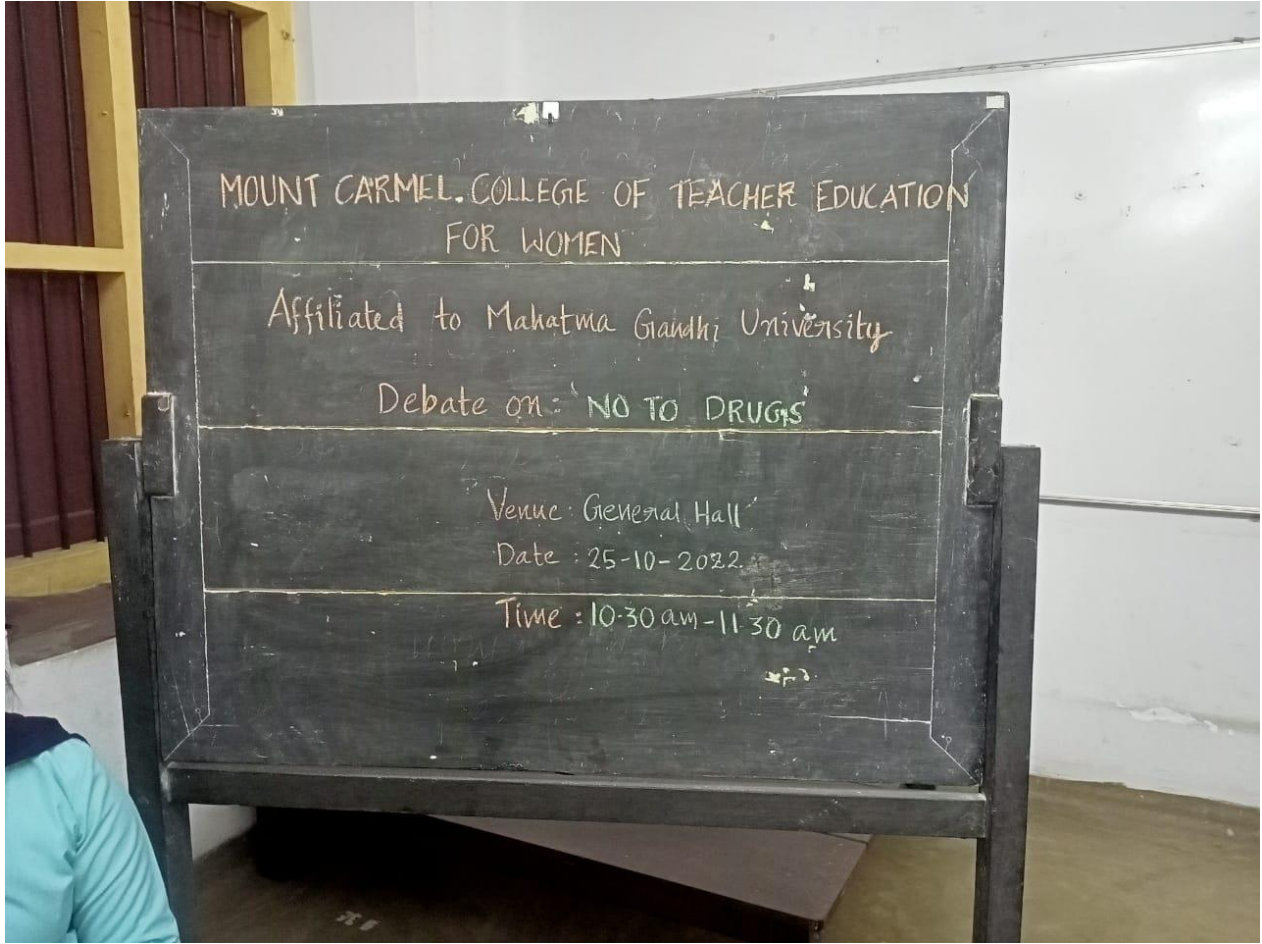 MOUNT CARMEL. COLLEGE OF TEACHER EDUCATION
FOR WOMEN
Affiliated to Mahatma Gandhi University
Debate on: 'NO TO DRUGS'
Venue: General Hall
Date : 25-10-2022.
Time : 10.30 am - 11.30 am